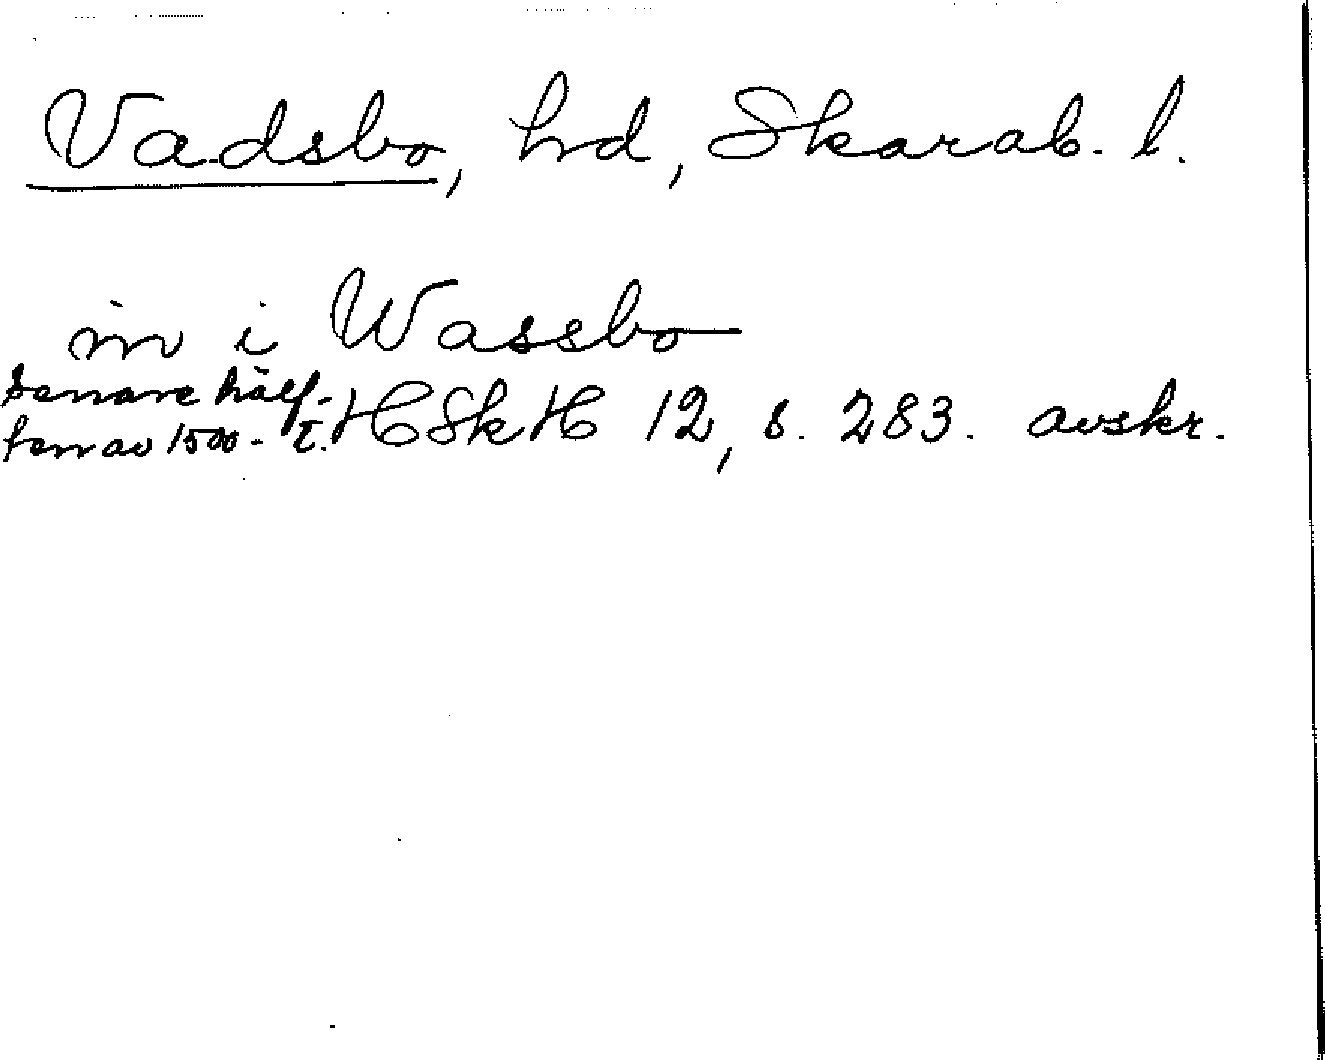 Vadsbo, hd, Skarab. l.
in i Wassbo
senare hälf-
ten av 1500-t. HSkH 12, s. 283. avskr.